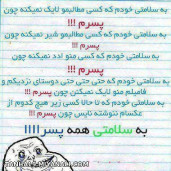 به سلامتی خودم که کسی مطالبمو لایک نمیکنه چون
پسرم !!!
به سلامتی خودم که کسی مطالبمو شیر نمیکنه چون
پسرم !!!
به سلامتی خودم که کسی منو ادد نمیکنه چون
پسرم !!!
به سلامتی خودم که حتی حتی حتی دوستای نزدیکم و
فامیلم منو لایک نمیکنن چون پسرم !!!
به سلامتی خودم که تا حالا کسی زیر هیچ کدوم از
عکسام ننوشته نایس چون پسرم !!!
به سلامتی همه پسراااا